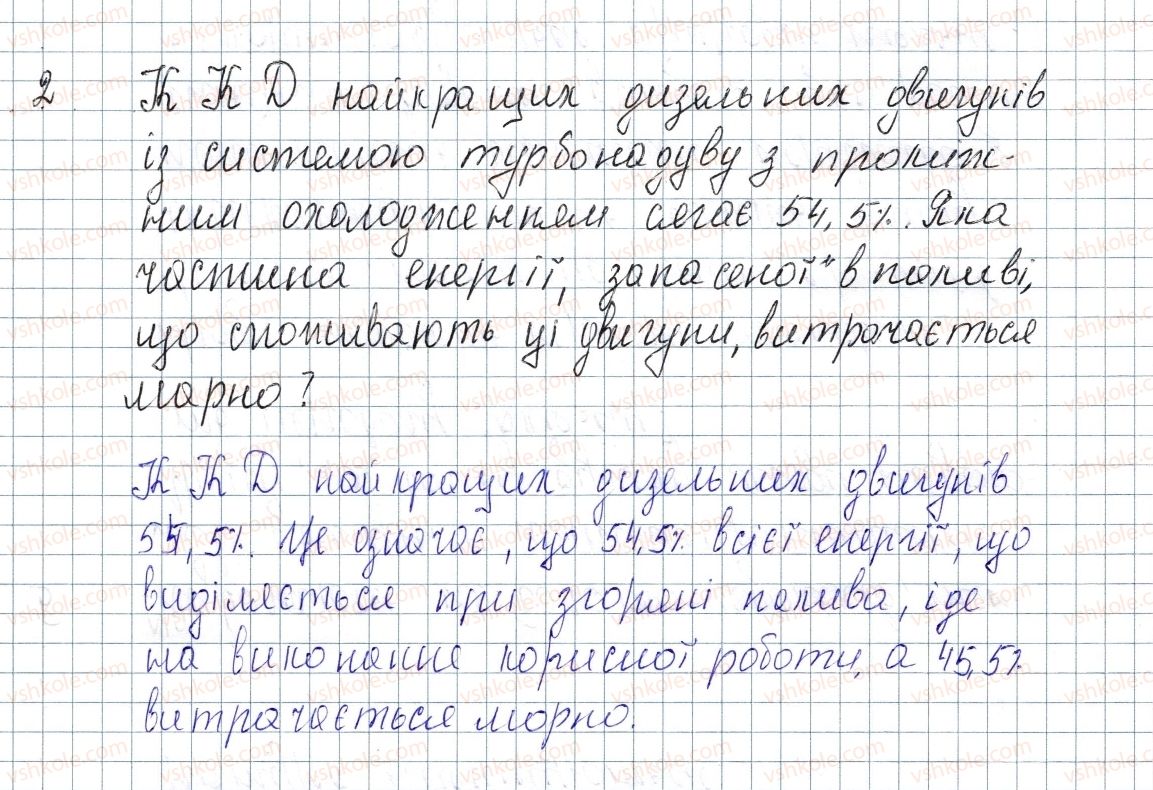 2 ККД найкращих дизельних двигунів
із системою турбонадуву з проміж-
ним охолодженням сягає 54,5%. Яка
частина енергії, "запасеної" в паливі,
що споживають ці двигуни, витрачається
марно?
ККД найкращих дизельних двигунів
54,5%. Це означає, що 54,5% всієї енергії, що
виділяється при згорянні палива, іде
на виконання корисної роботи, а 45,5%
витрачається марно.